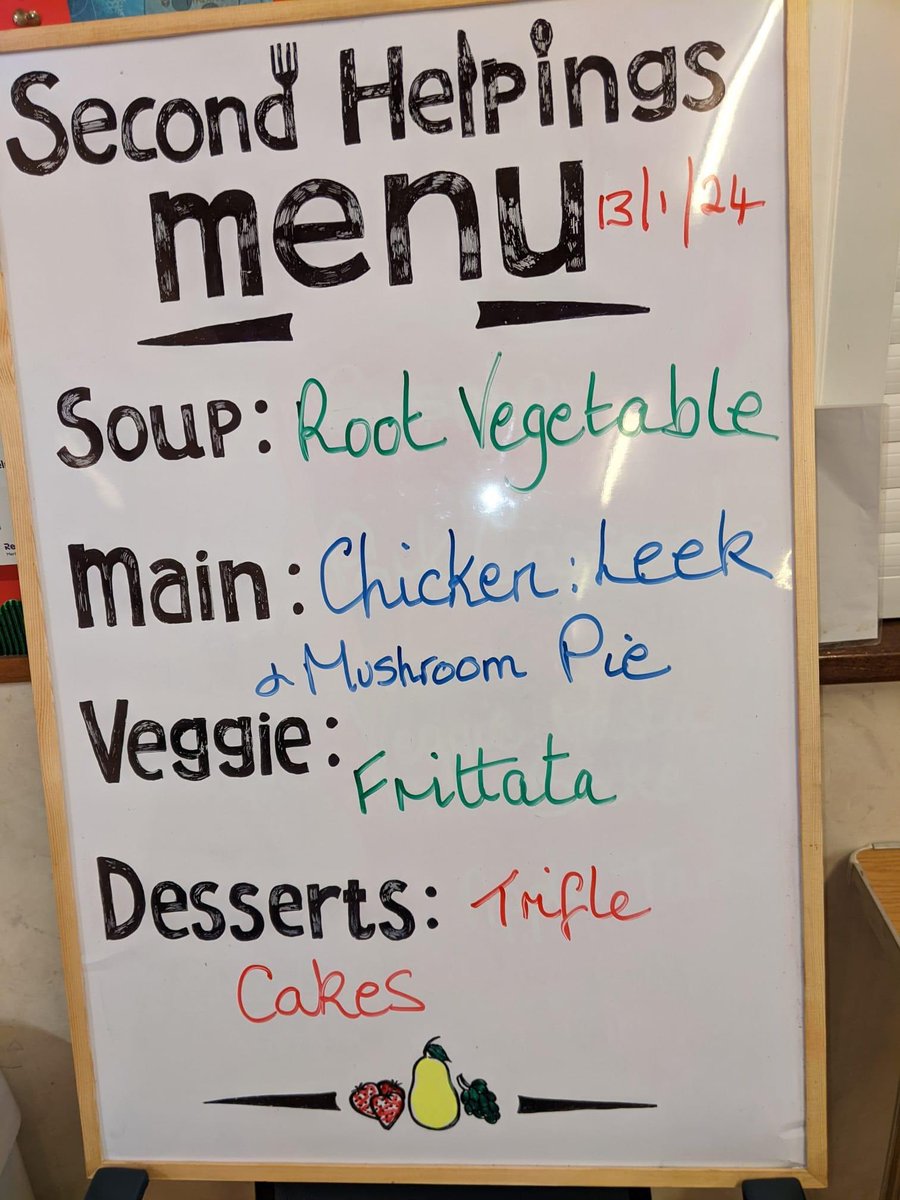 Second Helpings
menu 13/1/24
Soup: Root Vegetable
Main: Chicken: Leek
& Mushroom Pie
Veggie:
Frittata
Desserts: Trifle
Cakes